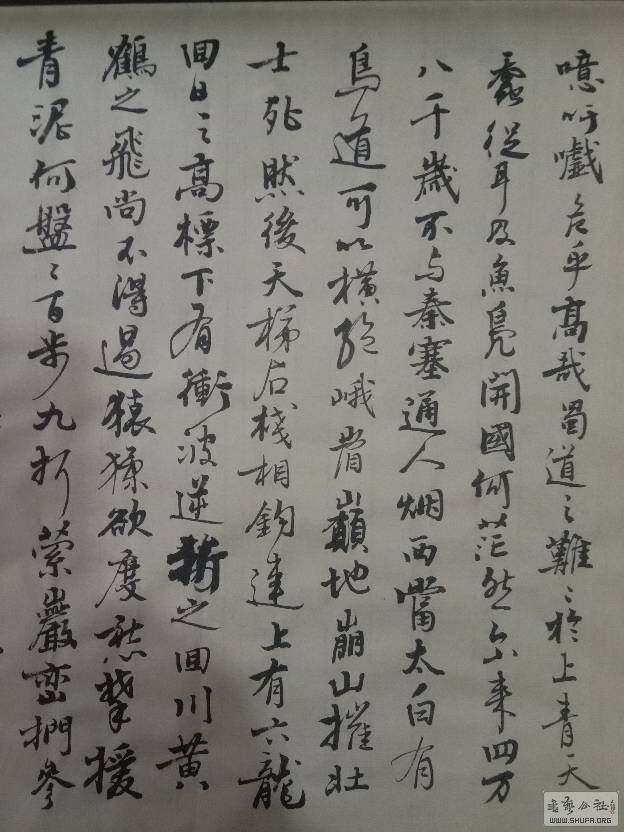 噫吁嚱危乎高哉蜀道之難〻於上青天
蚕從耳及魚鳧開國何茫然尔来四万
八千歲不与秦塞通人烟西當太白有
鳥道可以橫絶峨眉巔地崩山摧壯
士死然後天梯石棧相鈎連上有六龍
回日之高標下有衝波逆折之回川黄
鶴之飛尚不得過猿猱欲度愁攀援
青泥何盤〻百步九折縈巖巒捫參
書藝公社
WWW.SHUFA.ORG